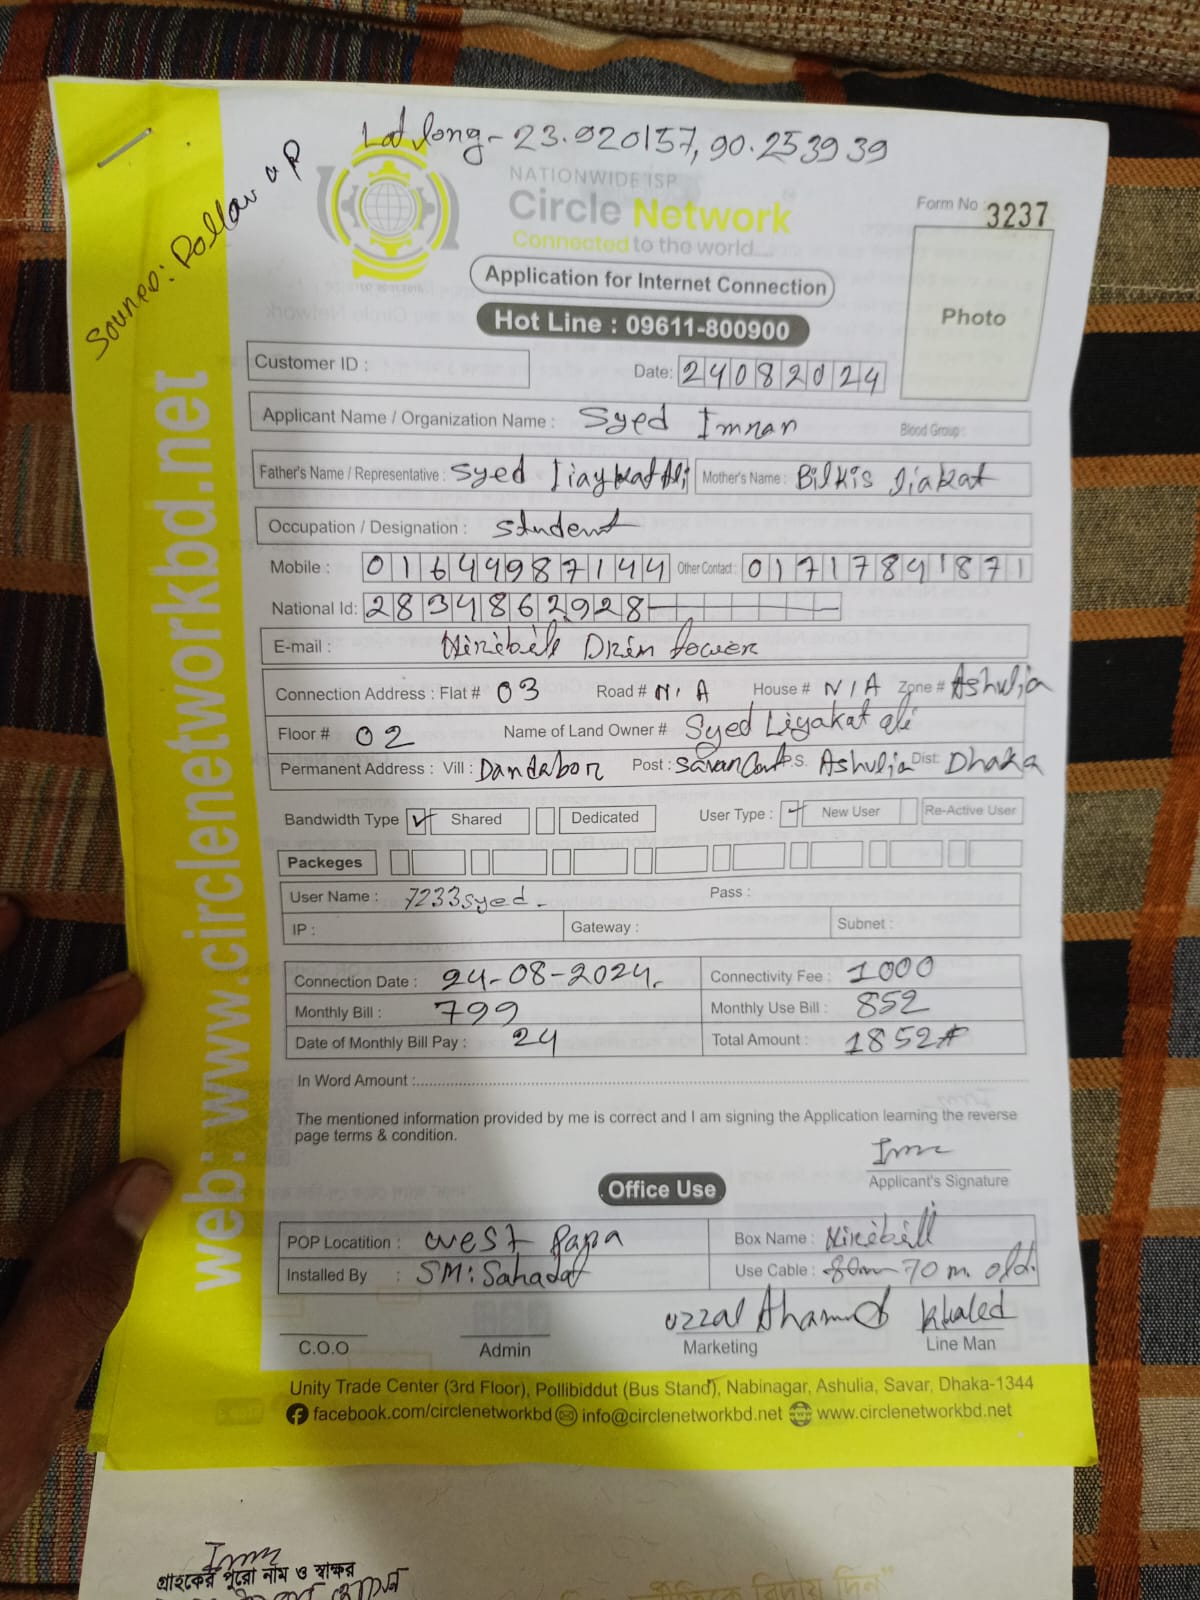 Lat long - 23.920157, 90.253939
NATIONWIDE ISP
Circle Network
Connected to the world....
Form No : 3237
Photo
Application for Internet Connection
Hot Line : 09611-800900
web: www.circlenetworkbd.net
Customer ID :
Date: 24082024
Applicant Name / Organization Name : Syed Imran
Blood Group :
Father's Name / Representative : Syed liaykat Ali Mother's Name : Bilkis liakat
Occupation / Designation : Student
Mobile : 01649987144 Other Contact : 01717841871
National Id: 2834862928
E-mail : Niribili Drim tower
Connection Address : Flat # 03 Road # N/A House # N/A Zone # Ashulia
Floor # 02 Name of Land Owner # Syed Liyakat ali
Permanent Address : Vill : Dandabor Post : Savar Cant P.S. Ashulia Dist: Dhaka
Bandwidth Type Shared Dedicated User Type : New User Re-Active User
Packeges
User Name : 7233syed Pass :
IP : Gateway : Subnet :
Connection Date : 24-08-2024. Connectivity Fee : 1000
Monthly Bill : 799 Monthly Use Bill : 852
Date of Monthly Bill Pay : 24 Total Amount : 1852
In Word Amount :
The mentioned information provided by me is correct and I am signing the Application learning the reverse
page terms & condition.
Applicant's Signature
Office Use
POP Locatition : West Para Box Name : Niribili
Installed By : SM: Sahadat Use Cable : 70 m. old.
Uzzal Ahamed Khaled
C.O.O Admin Marketing Line Man
Unity Trade Center (3rd Floor), Pollibiddut (Bus Stand), Nabinagar, Ashulia, Savar, Dhaka-1344
facebook.com/circlenetworkbd info@circlenetworkbd.net www.circlenetworkbd.net
গ্রাহকের পুরো নাম ও স্বাক্ষর